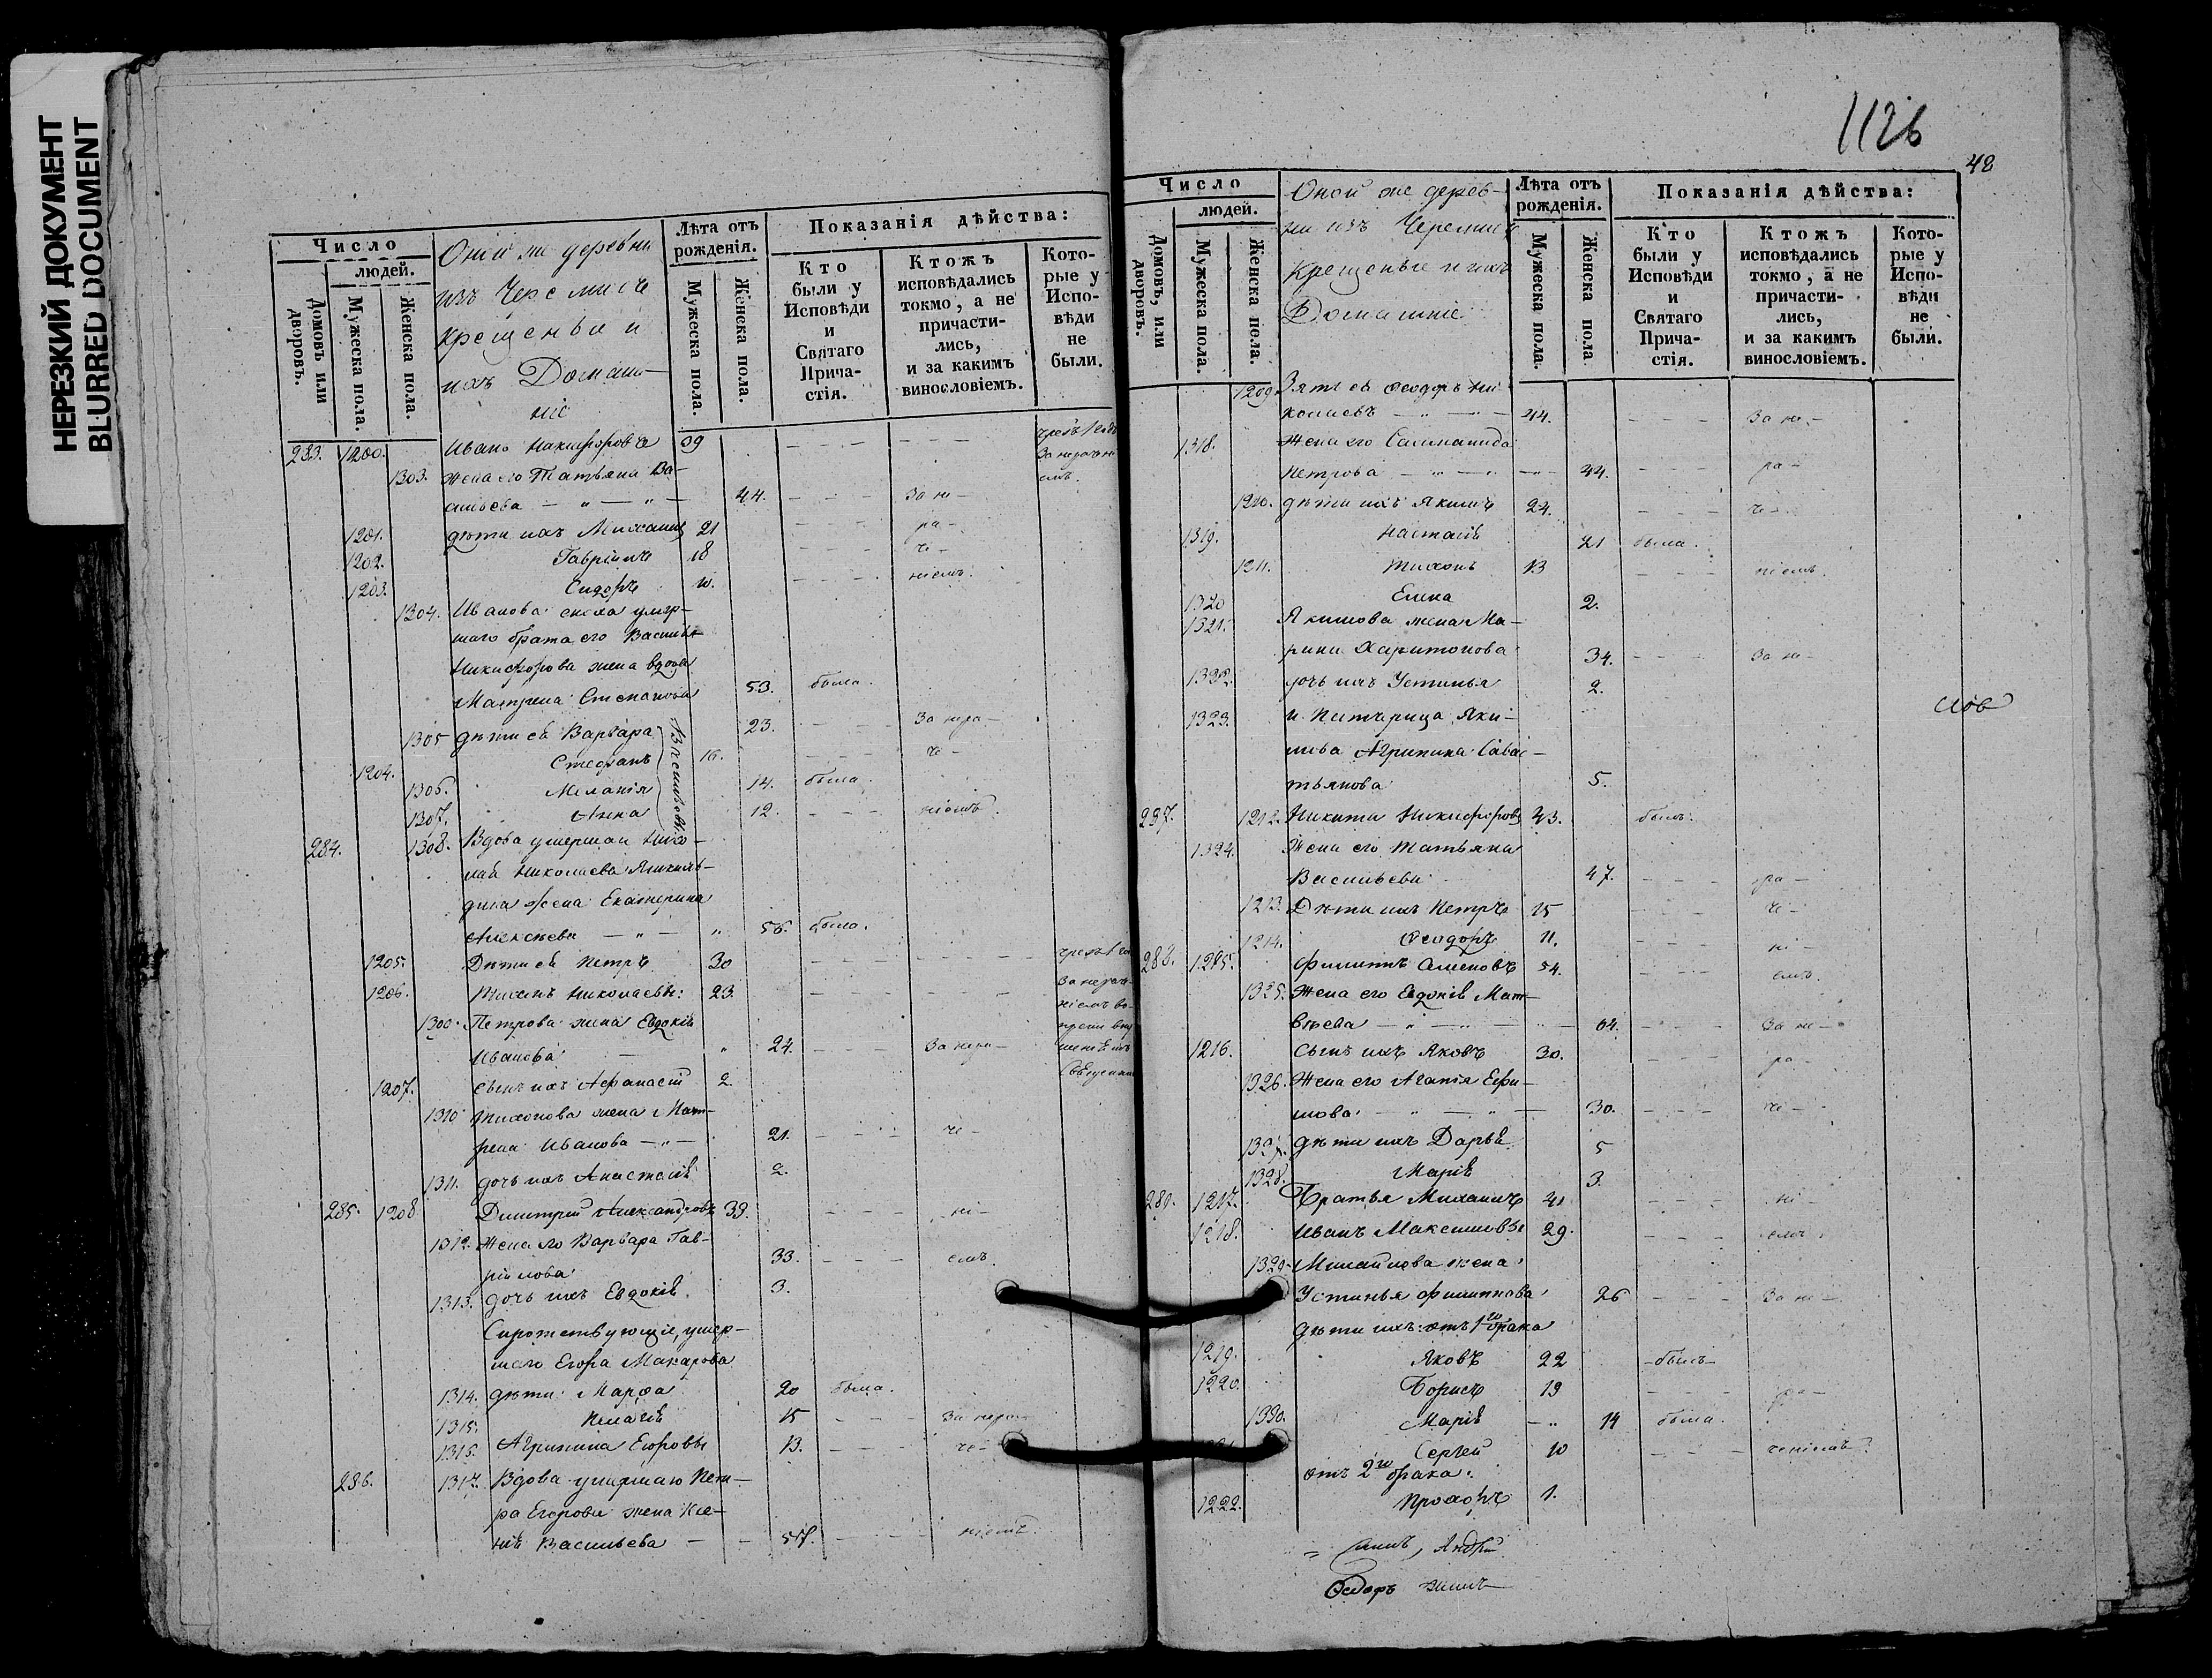 НЕРЕЗКИЙ ДОКУМЕНТ
BLURRED DOCUMENT
Число
людей.
Домовъ или дворовъ.
Мужеска пола.
Женска пола.
Оной же деревни
изъ Черемисъ
крещеные и
ихъ Домаш-
ніе
Лѣта отъ рожденія.
Мужеска пола.
Женска пола.
Показанія дѣйства:
Кто были у Исповѣди и Святаго Прича-стія.
Ктожъ исповѣдались токмо, а не причасти-лись, и за какимъ винословіемъ.
Кото-рые у Испо-вѣди не были.
283. 1200. Иванъ Никифоровъ 59 - - - - - -
1303. Жена его Татьяна Ва-
сильева — " — " — 44. - - - За не-
1201. дѣти ихъ Михаилъ 21 - - - ра-
1202. Гавріилъ 18 - - - че-
1203. Сидоръ 10. - - - ніемъ.
1304. Иванова сноха умер-
шаго брата его Василья
Никифорова жена вдова
Матрена Степанова 53. была.
1305 дѣти ея Варвара 23. - - - За нера-
1204. Стефанъ 16. - - - че-
1306. Меланія 14. была.
1307. Анна 12. - - - ніемъ
Васильевы
284. 1308. Вдова умершаго Нико-
лая Николаева
жена Екатерина
Алексѣева — " — " 56. была.
1205. Дѣти ея Петръ 30 - - - - - -
1206. Тихонъ Николаевы: 23. - - - - - -
1300. Петрова жена Евдокія
Иванова — " 24. - - - За нера-
1207. сынъ ихъ Афанасій 2
1310 Тихонова жена Мат-
рена Иванова — " — 21. - - - че-
1311. дочь ихъ Анастасія 2.
285. 1208 Димитрій Александровъ 33. - - - ні-
1312. Жена его Варвара Гав-
рилова 33. - - - емъ.
1313. дочь ихъ Евдокія. 3.
Сиротствующіе, умер-
шаго Егора Макарова
1314. дѣти: Марфа 20 была.
1315. Пелагія 15 - - - За нера-
1316. Агрипина Егоровы 13. - - - че-
286. 1317. Вдова умершаго Пет-
ра Егорова жена Ксе-
нія Васильева — - 57. - - - ніемъ.
1126
42
Число
людей.
Домовъ, или дворовъ.
Мужеска пола.
Женска пола.
Оной же дерев-
ни изъ Черемисъ
Крещеные и ихъ
Домашніе
Лѣта отъ рожденія.
Мужеска пола.
Женска пола
Показанія дѣйства:
Кто были у Исповѣди и Святаго Прича-стія.
Ктожъ исповѣдались токмо, а не причасти-лись, и за какимъ винословіемъ.
Кото-рые у Испо-вѣди не были.
1209. Зять ея Феодоръ Ни-
колаевъ — " — " — 44. - - - За не-
1318. Жена его Саломанида
Петрова — " — " — " — 44. - - - ра-
1210. дѣти ихъ Якимъ 24. - - - че-
1319. Настасія 21 была.
1211. Тихонъ 13 - - - ніемъ.
1320 Елена 2.
1321. Якимова жена Ма-
рина Харитонова 34. - - - За не-
1322. дочь ихъ Устинья 2.
1323. и Питарица Яки-
мова Агрипина Савас-
тьянова 5.
287. 1212. Никита Никифоровъ 43. былъ.
1324. Жена его Татьяна
Васильева 47. - - - ра-
1213. Дѣти ихъ Петръ 15 - - - че-
1214. Феодоръ 11. - - - ні-
288. 1215. Филиппъ Семеновъ 54. - - - емъ.
1325. Жена его Евдокія Мат-
вѣева — " — " — " — 64. - - - За не-
1216. Сынъ ихъ Яковъ 30. - - - ра-
1326. Жена его Агапія Ефи-
мова — " — " — 30. - - - че-
1327. дѣти ихъ Дарья 5
1328. Марія 3.
289. 1217. Братья Михаилъ 41 - - - ні-
1218. Иванъ Максимовы 29. - - - емъ.
1329. Михайлова жена
Устинья Филиппова 26 - - - За не-
дѣти ихъ: отъ 1го брака
1219. Яковъ 22 -былъ-
1220. Борисъ 19 - - - ра-
1330. Марія — " 14 была.
Сергей 10 - - - ченіемъ.
отъ 2го брака:
1222. Прохоръ 1.